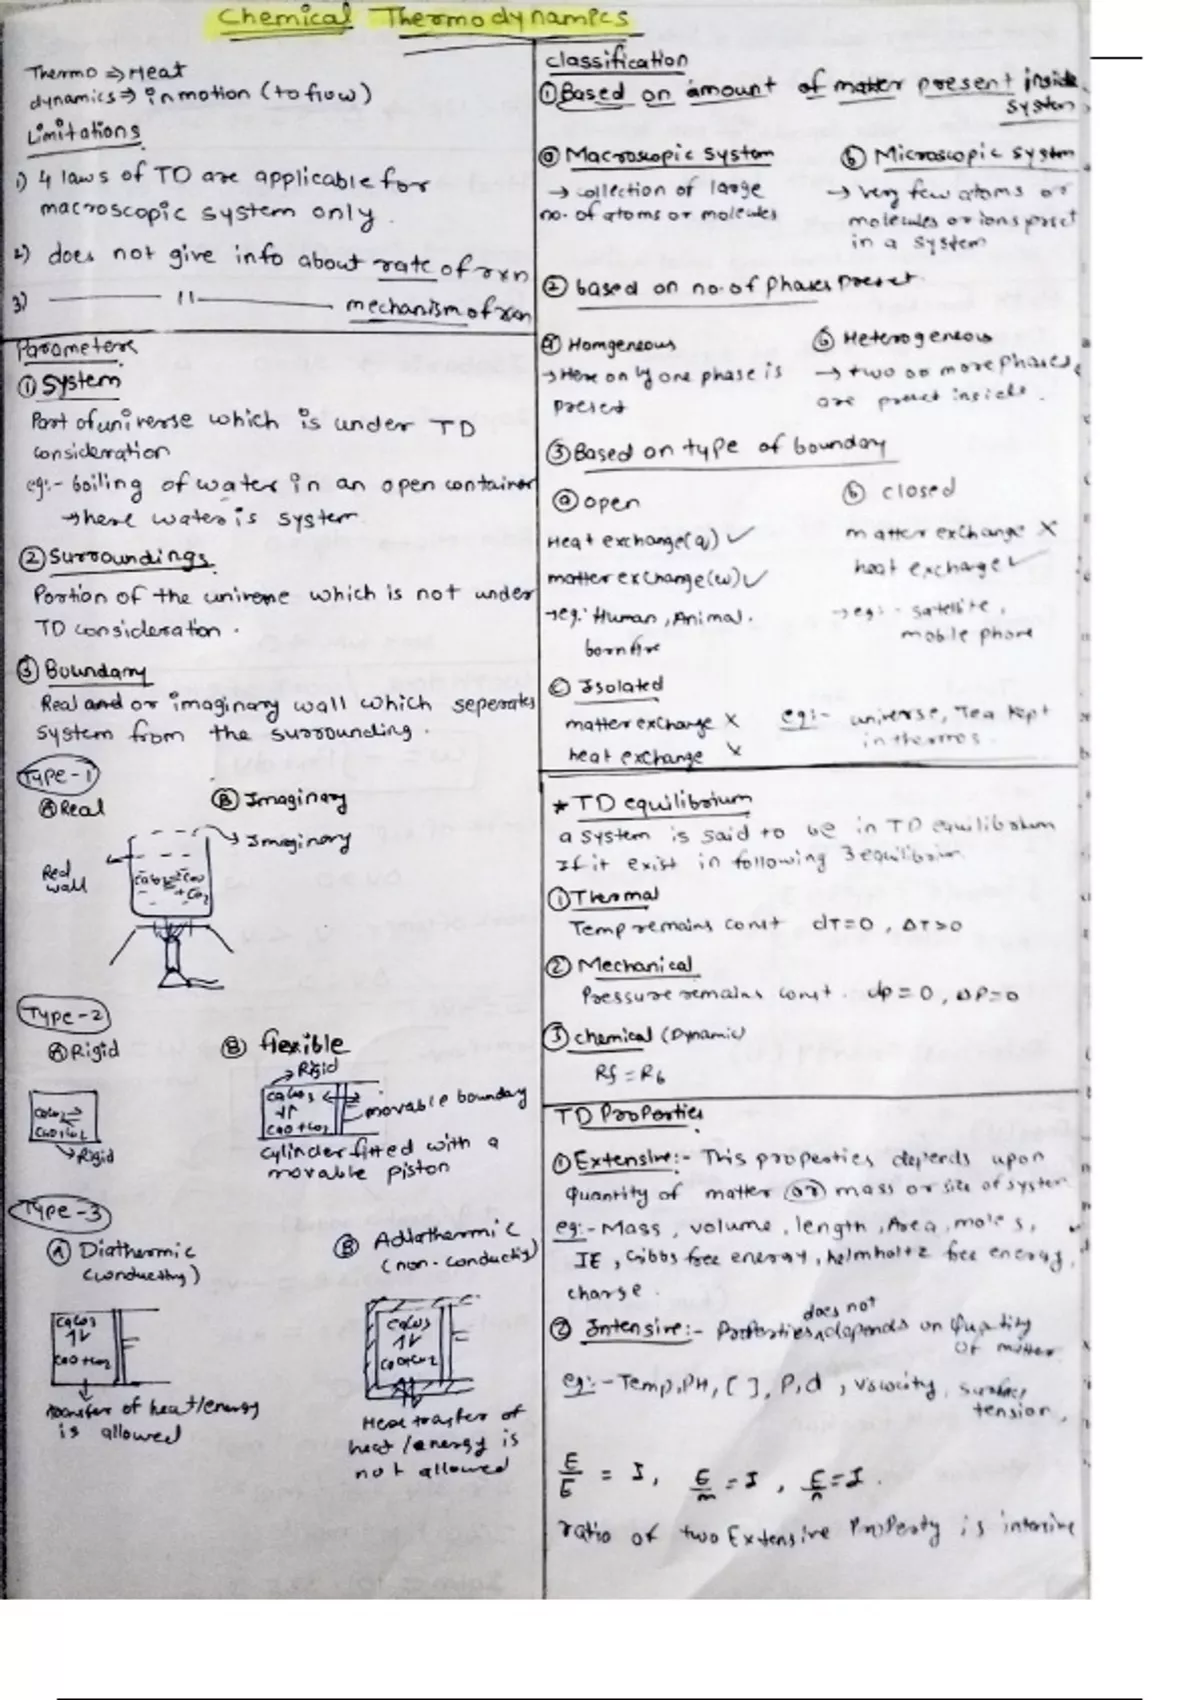 Chemical Thermodynamics
Thermo ⇒ Heat
dynamics ⇒ in motion (to flow)
Limitations
1) 4 laws of TD are applicable for
macroscopic system only.
2) does not give info about rate of rxn
3) ——— 11 ——— mechanism of rxn
Parameters
① System
Part of universe which is under TD
consideration
eg:- boiling of water in an open container
→ here water is system
② Surroundings
Portion of the universe which is not under
TD consideration.
③ Boundary
Real and or imaginary wall which seperates
system from the surrounding.
Type-1
Ⓐ Real Ⓑ Imaginary
→ Imaginary
Real
wall
Type-2
Ⓐ Rigid Ⓑ flexible
→ Rigid
CaCO3
CaO+CO2
movable boundary
→ Rigid
cylinder fitted with a
movable piston
Type-3
Ⓐ Diathermic
(conducting)
Ⓑ Adiathermic
(non-conducting)
CaCO3
CaO+CO2
CaCO3
CaO+CO2
transfer of heat/energy
is allowed
Here transfer of
heat/energy is
not allowed
classification
① Based on amount of matter present inside
system
ⓐ Macroscopic system
→ collection of large
no. of atoms or molecules
ⓑ Microscopic system
→ very few atoms or
molecules or ions
in a system
② based on no. of phases
ⓐ Homgeneous
→ Here only one phase is
present
ⓑ Heterogeneous
→ two or more phases
are present inside.
③ Based on type of boundary
ⓐ open
Heat exchange(q) ✓
matter exchange(w) ✓
→ eg:- Human, Animal.
bornfire
ⓑ closed
matter exchange X
heat exchange ✓
→ eg:- satellite,
mobile phone
ⓒ Isolated
matter exchange X
heat exchange X
eg:- universe, Tea kept
in thermos.
* TD equilibrium
a system is said to be in TD equilibrium
If it exist in following 3 equilibrium
① Thermal
Temp remains const dT=0, ΔT>0
② Mechanical
Pressure remains const. dp=0, ΔP=0
③ chemical (Dynamic)
Rf = Rb
TD Properties
① Extensive:- This properties depends upon
quantity of matter (or) mass or size of system
eg:- Mass, volume, length, Area, moles,
IE, Gibbs free energy, helmholtz free energy,
charge.
② Intensive:- Properties does not depends on Quantity
of matter
eg:- Temp, PH, [ ], P, d, viscosity, surface
tension,
E/E = I, E/m = I, E/n = I.
ratio of two Extensive Property is intensive